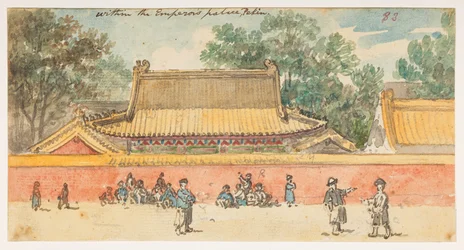 within the Emperor's palace, Pekin.
83